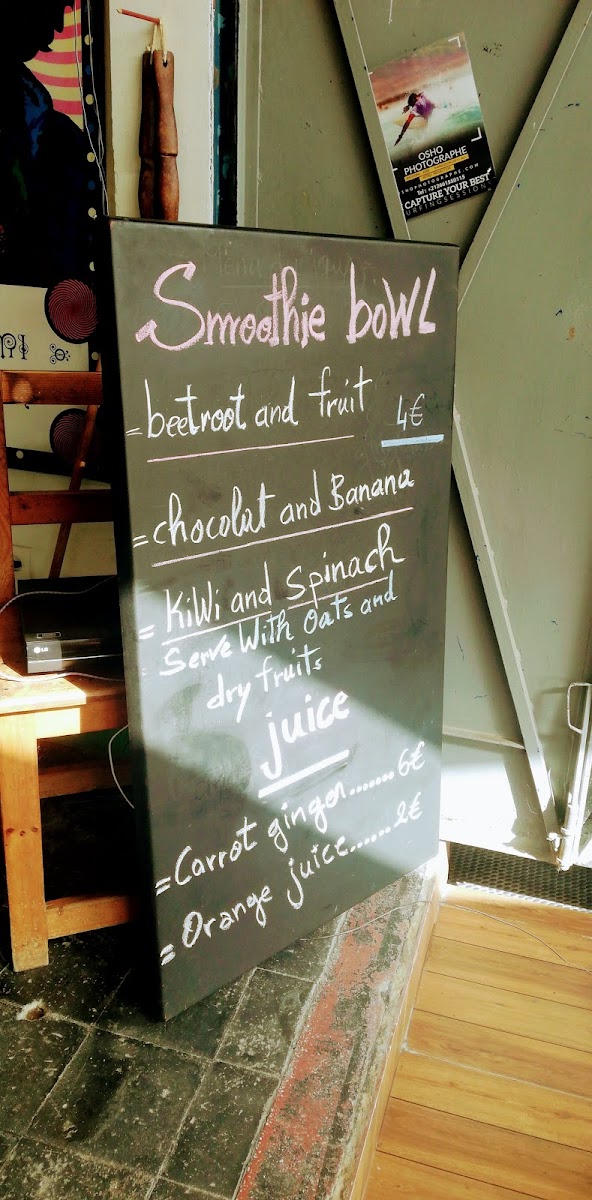 OSHO
PHOTOGRAPHE
CAPTURE YOUR BEST
URFINGSESSION
Smoothie boWL
=beetroot and fruit 4€
=chocolat and Banana
= KiWi and spinach
Serve With Oats and
dry fruits
juice
=Carrot ginger.......6€
=Orange juice......2€
LG